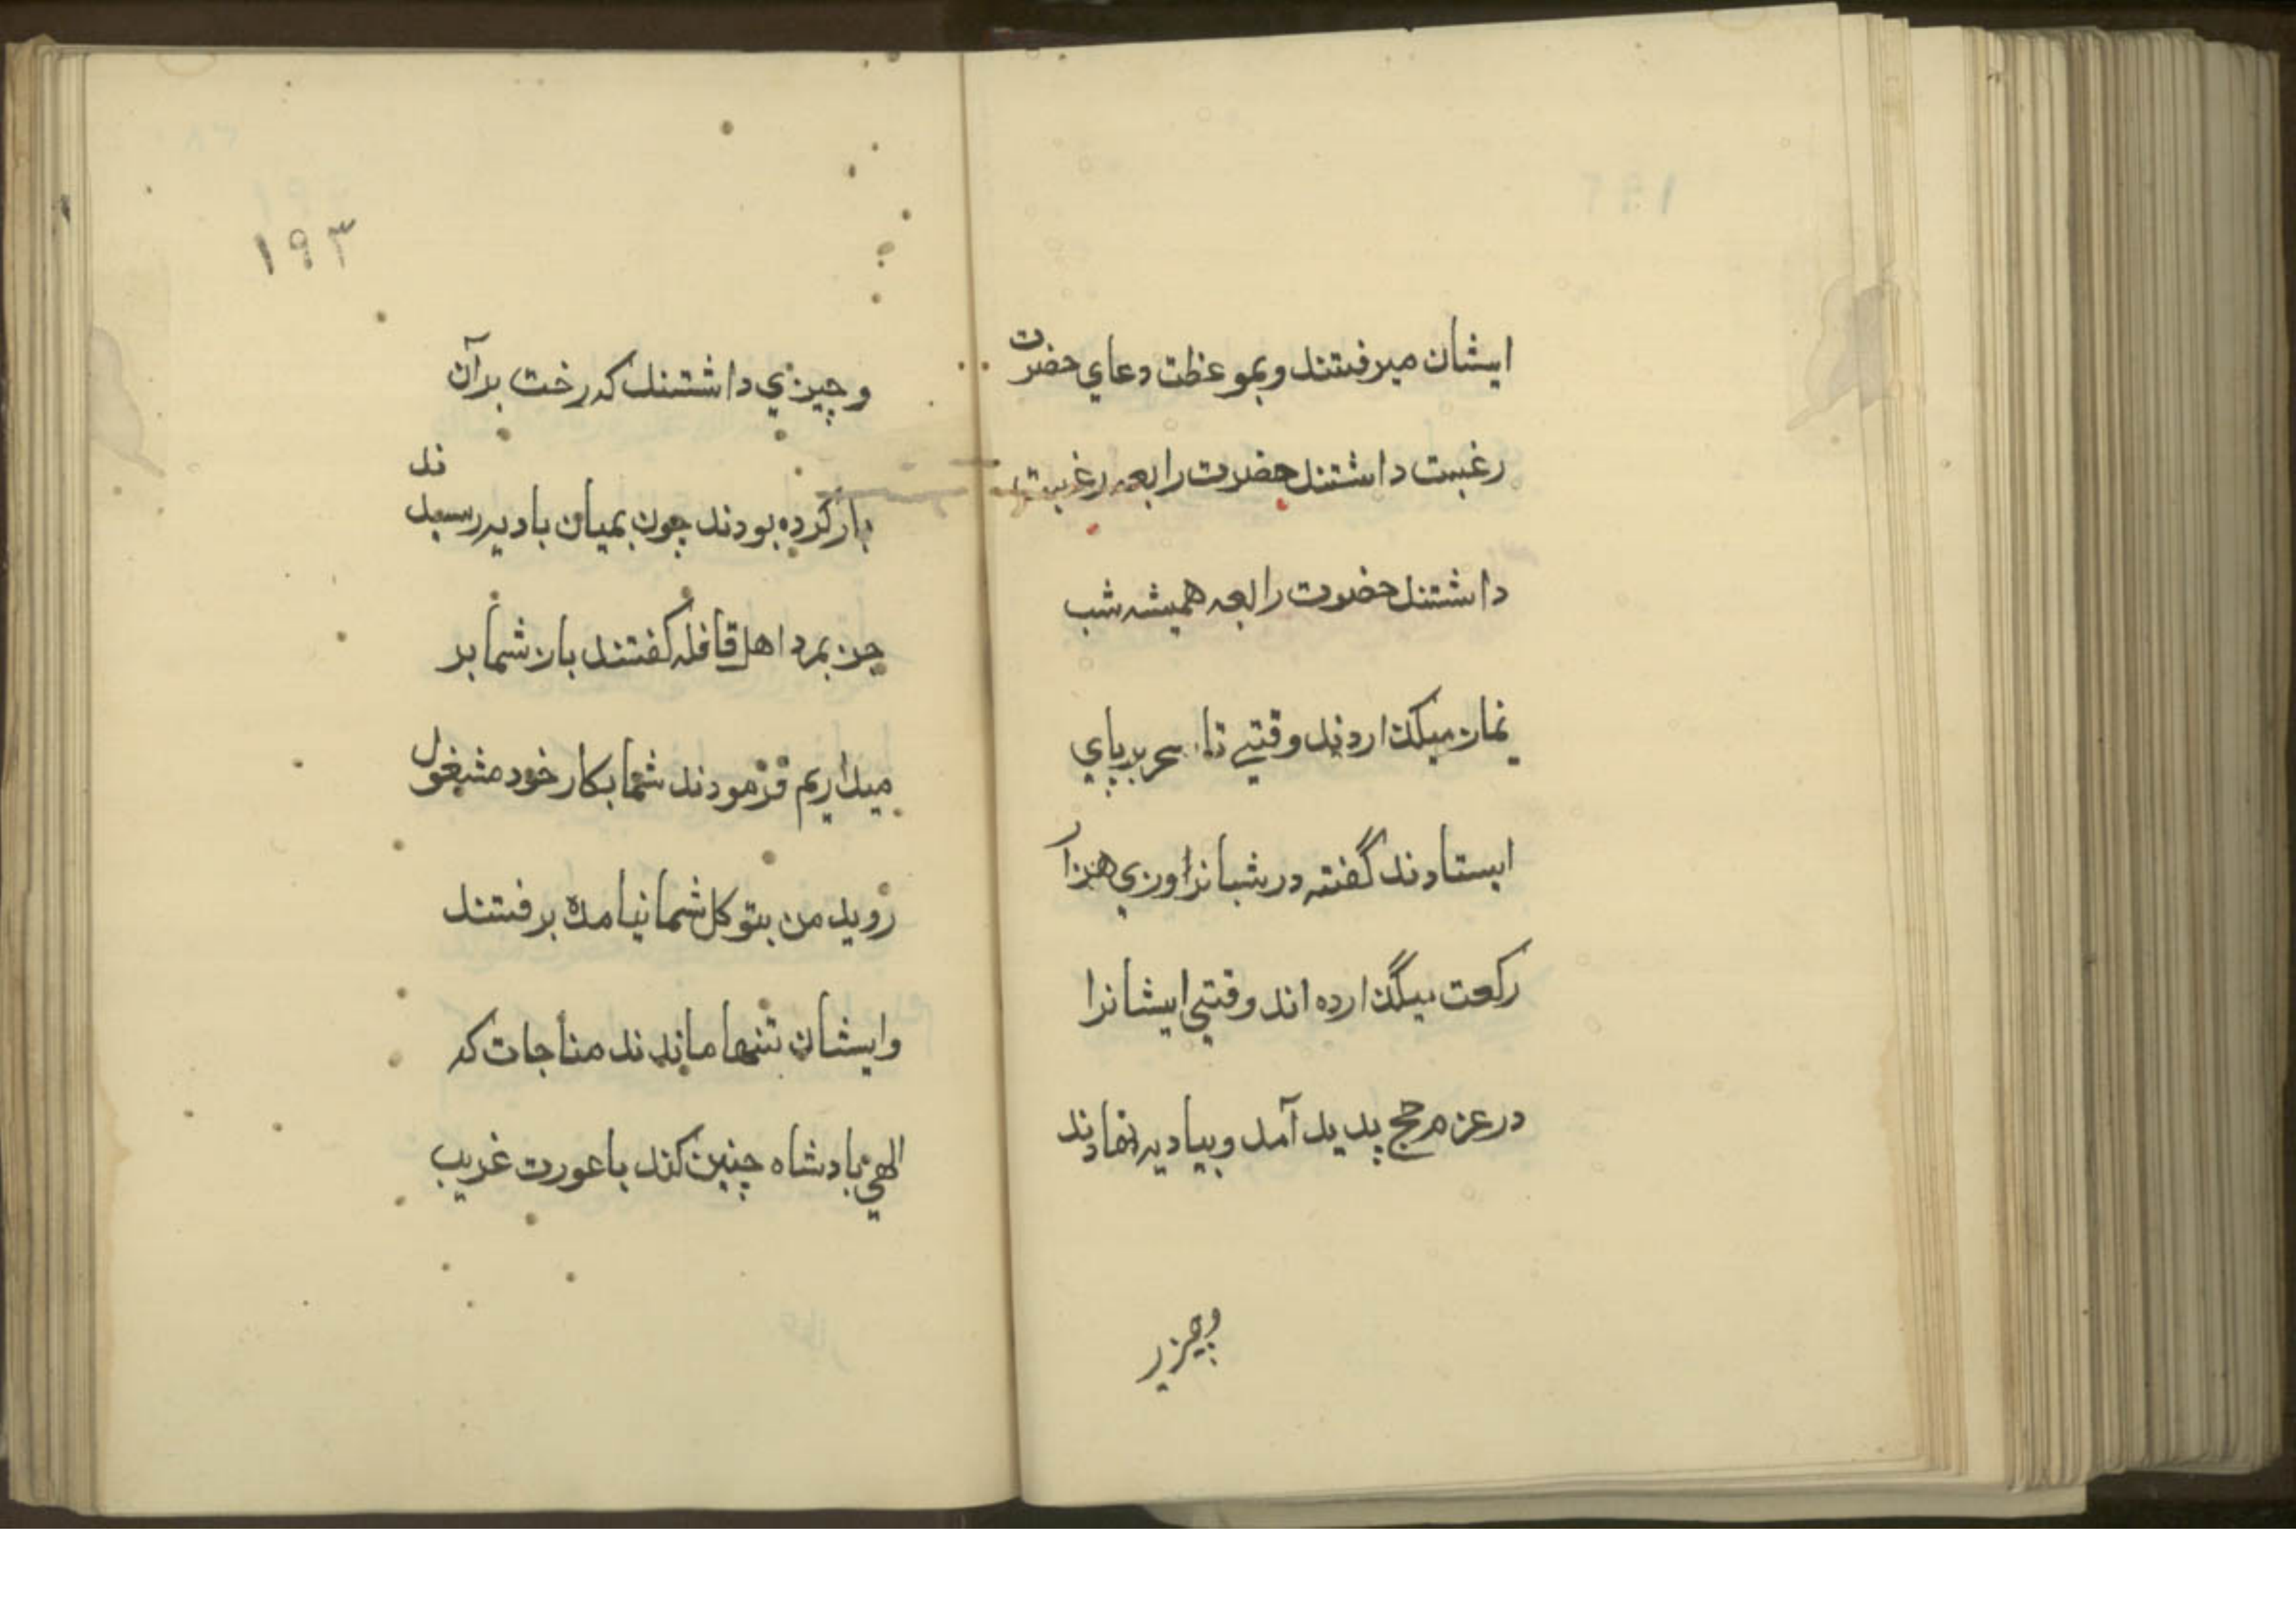 ایشان میرفتند و بموعظت دعاي حضرت
رغبت داشتند حضرت رابعه رغبت
داشتند حضرت رابعه همیشه شب
نماز میکذاردند وقتي تا سحر برپاي
ایستادند گفته در شبانراوزي هزار
رکعت میگذارده اند وقتي ایشانرا
در عزم حج پدید آمد و ببادیه نهادند
وچیزر
۱۹۳
و چیزي داشتند که رخت برآن
بار کرده بودند چون بمیان بادیه رسیدند
خر بمرد اهل قافله کفتند بار شما بر
میداریم فرمودند شما بکار خود مشغول
روید من بتوکل شما نیامدہ برفتند
وایشان تنها ماندند مناجات که
الهي پادشاه چنین کند باعورت غریب